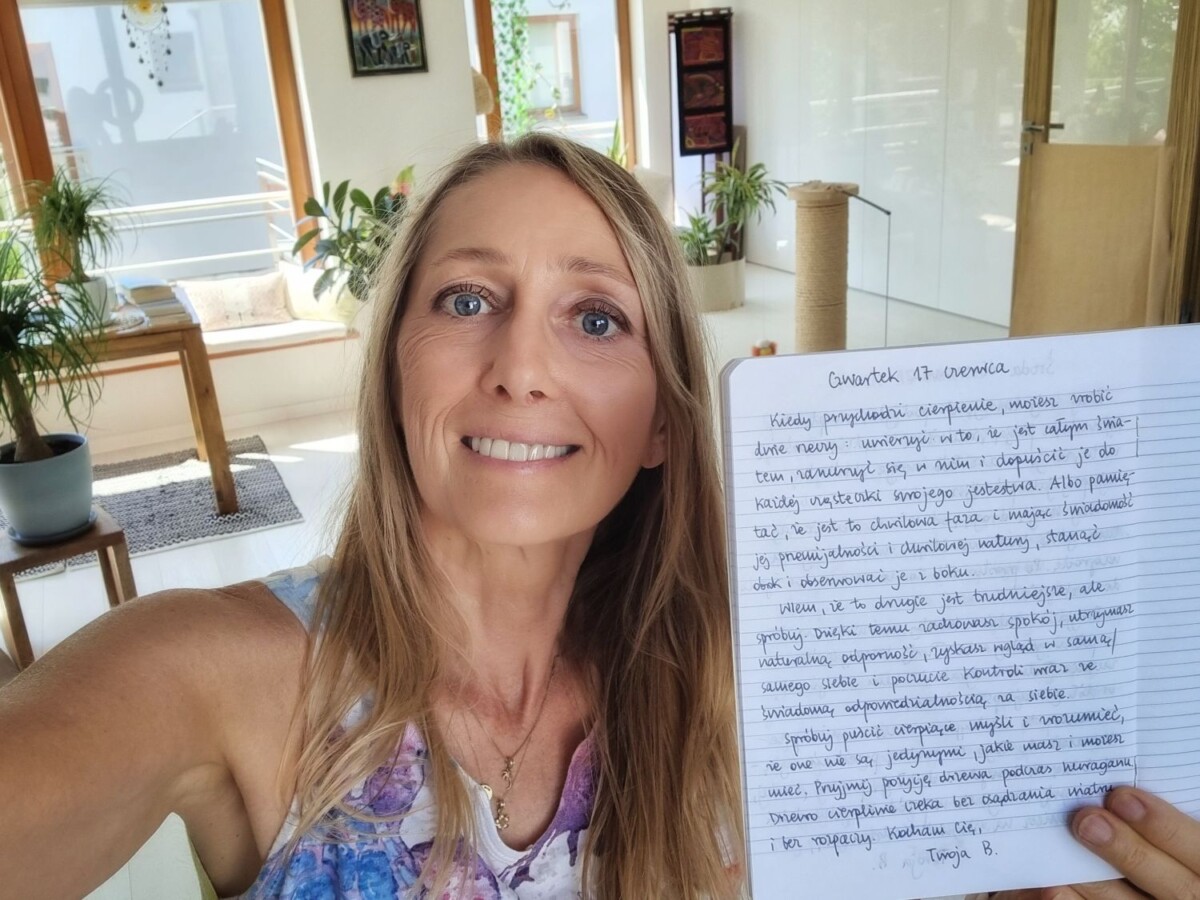 UP
Czwartek 17 czerwca
Kiedy przychodzi cierpienie, możesz zrobić
dwie rzeczy: uwierzyć w to, że jest całym świa-
tem, zanurzyć się w nim i dopuścić je do
każdej cząsteczki swojego jestestwa. Albo pamię-
tać, że jest to chwilowa faza i mając świadomość
jej przemijalności i chwilowej natury, stanąć
obok i obserwować je z boku.
Wiem, że to drugie jest trudniejsze, ale
spróbuj. Dzięki temu zachowasz spokój, utrzymasz
naturalną odporność, zyskasz wgląd w samą/
samego siebie i poczucie kontroli wraz ze
świadomą odpowiedzialnością za siebie.
Spróbuj puścić cierpiące myśli i zrozumieć,
że one nie są jedynymi, jakie masz i możesz
mieć. Przyjmij pozycję drzewa podczas huraganu.
Drzewo cierpliwie czeka bez osądzania wiatru
i bez rozpaczy. Kocham Cię,
Twoja B.